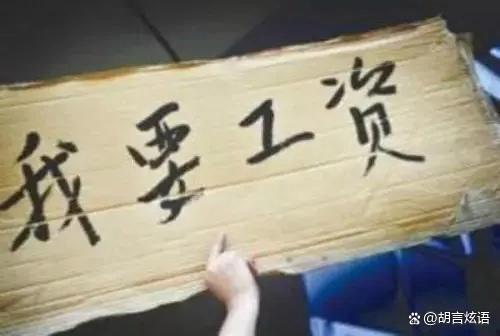 我要工资
@胡言炫语